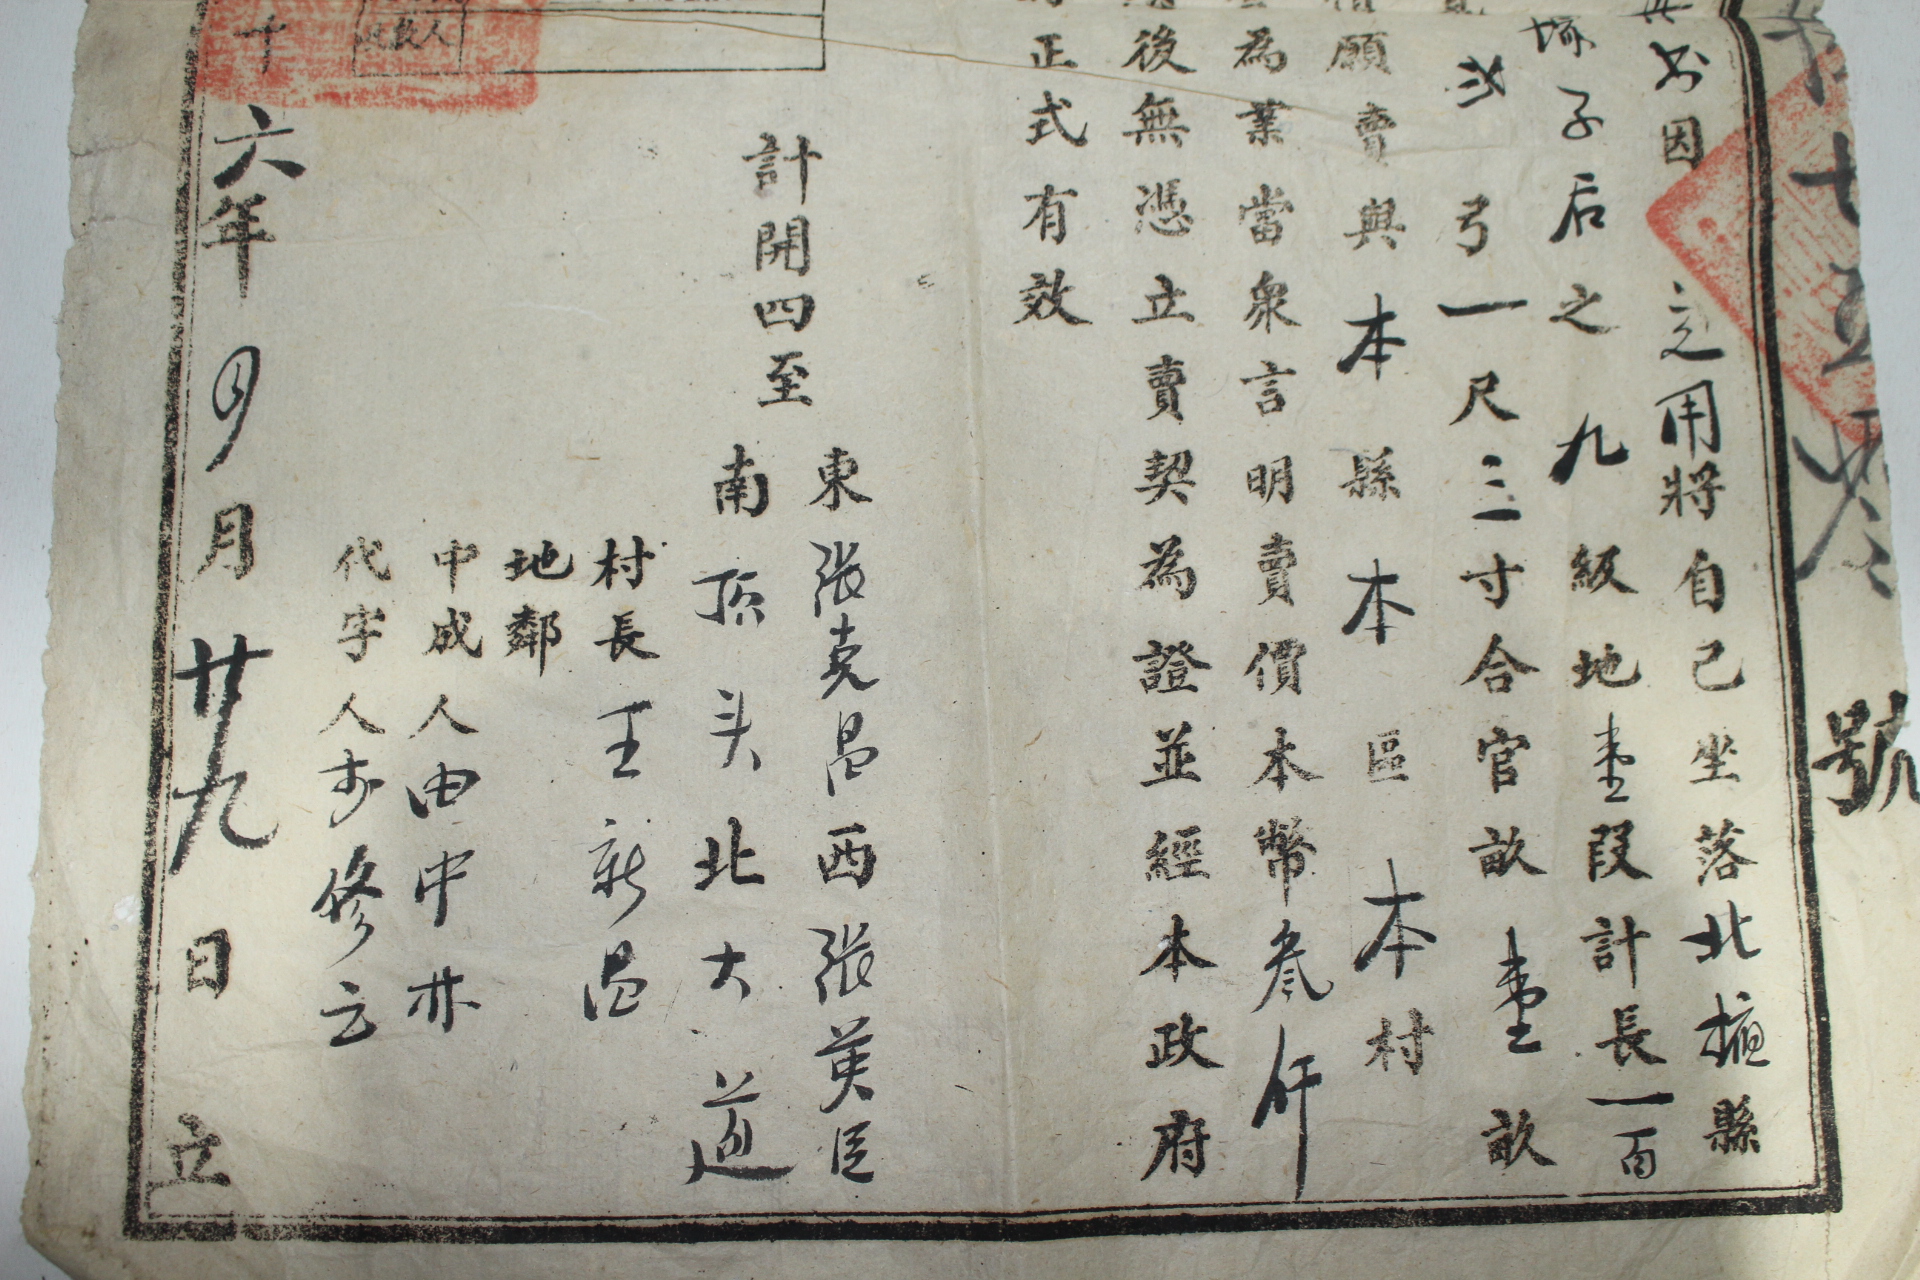 號
因 用將自己坐落北掖縣
子后之九級地壹段計長一百
弓一尺三寸合官畝壹畝
願賣與本縣本區本村
為業當衆言明賣價本幣叁仟
後無憑立賣契為證並經本政府
正式有效
計開四至
東張克昌西張英臣
南頂头北大道
村長王新昌
地鄰
中成人由中林
代字人 修云
六年 月廿九日立